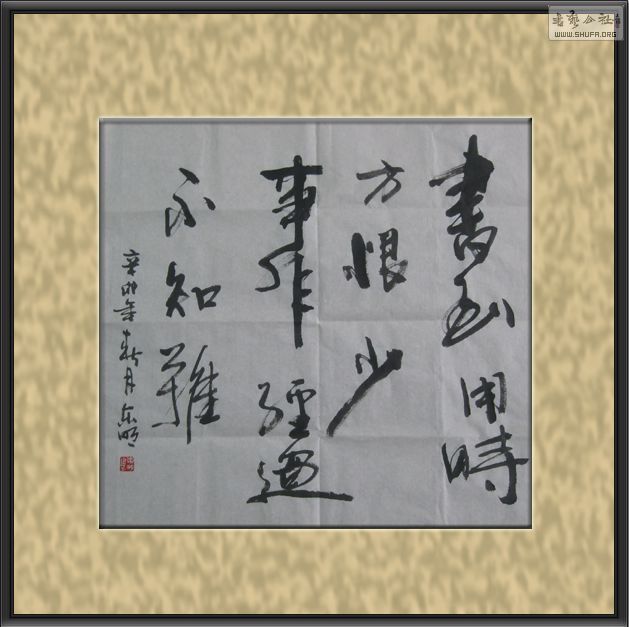 書到用時
方恨少
事非經過
不知難
辛卯年新月东明
书艺公社
WWW.SHUFA.ORG